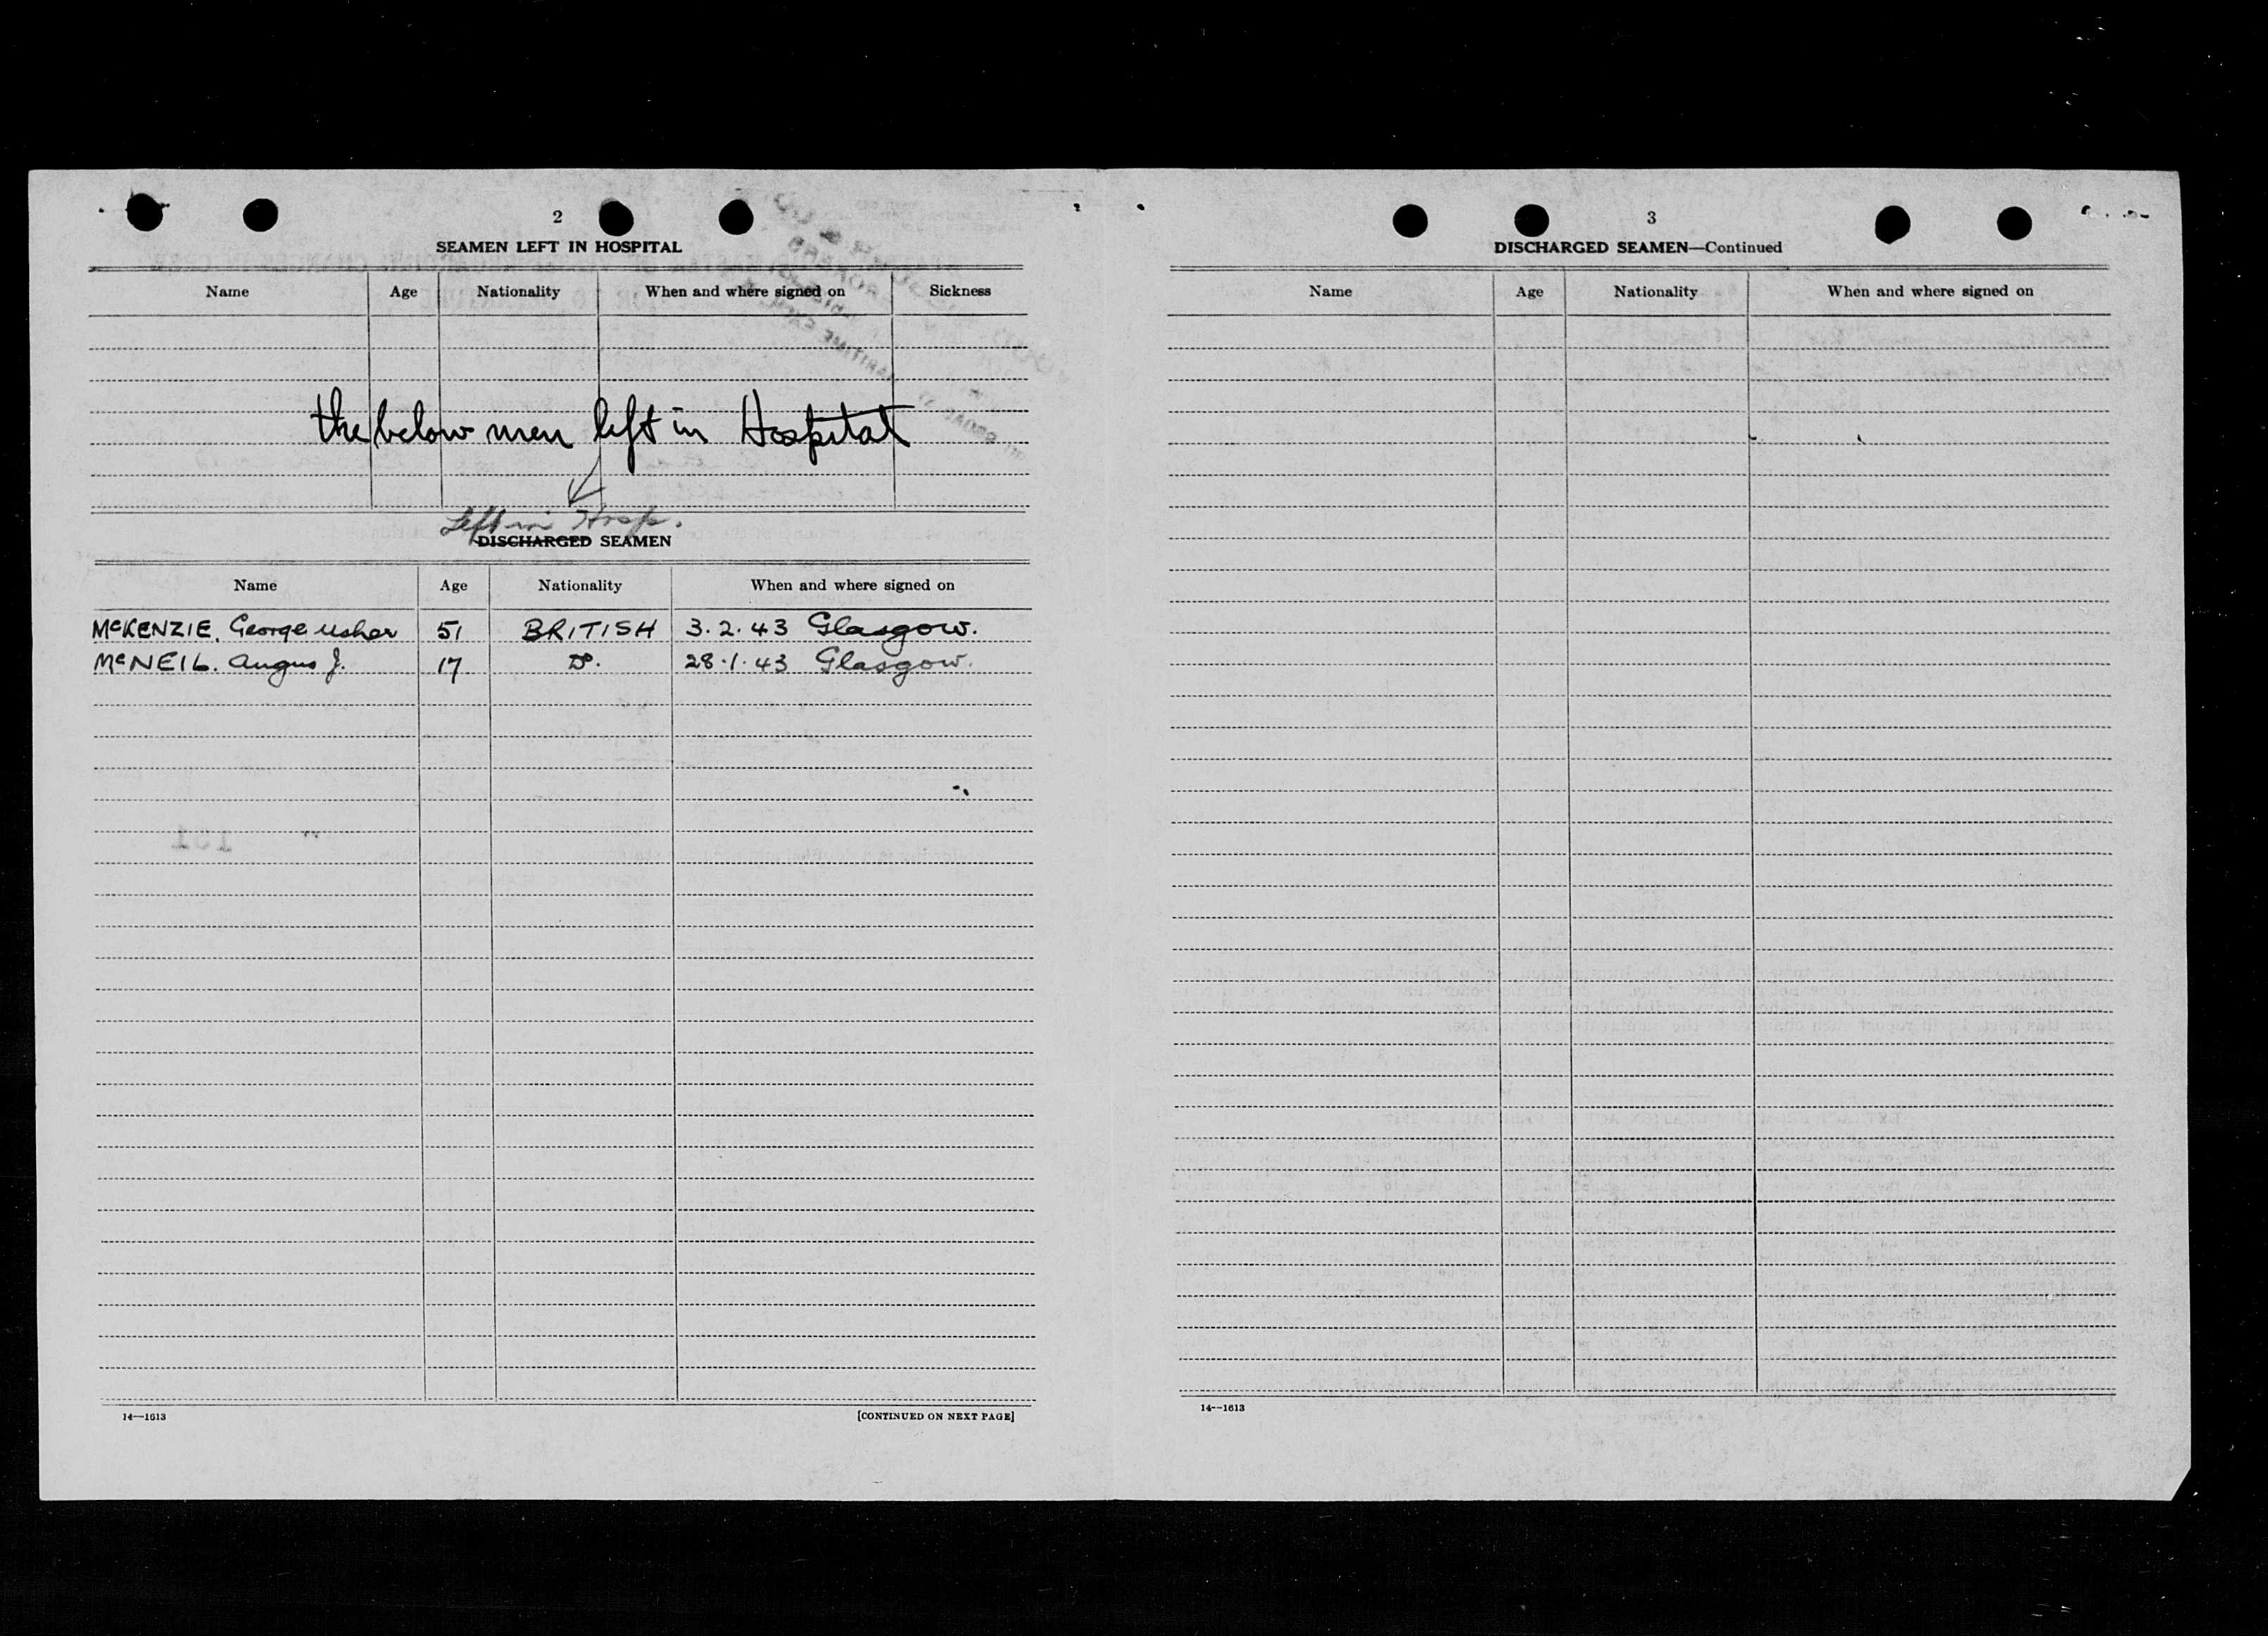 2
SEAMEN LEFT IN HOSPITAL
Name Age Nationality When and where signed on Sickness
the below men left in Hospital
Left in Hosp.
DISCHARGED SEAMEN
Name Age Nationality When and where signed on
McKENZIE, George Usher 51 BRITISH 3.2.43 Glasgow.
McNEIL. Angus J. 17 Do. 28.1.43 Glasgow.
14—1613 [CONTINUED ON NEXT PAGE]
3
DISCHARGED SEAMEN—Continued
Name Age Nationality When and where signed on
14—1613